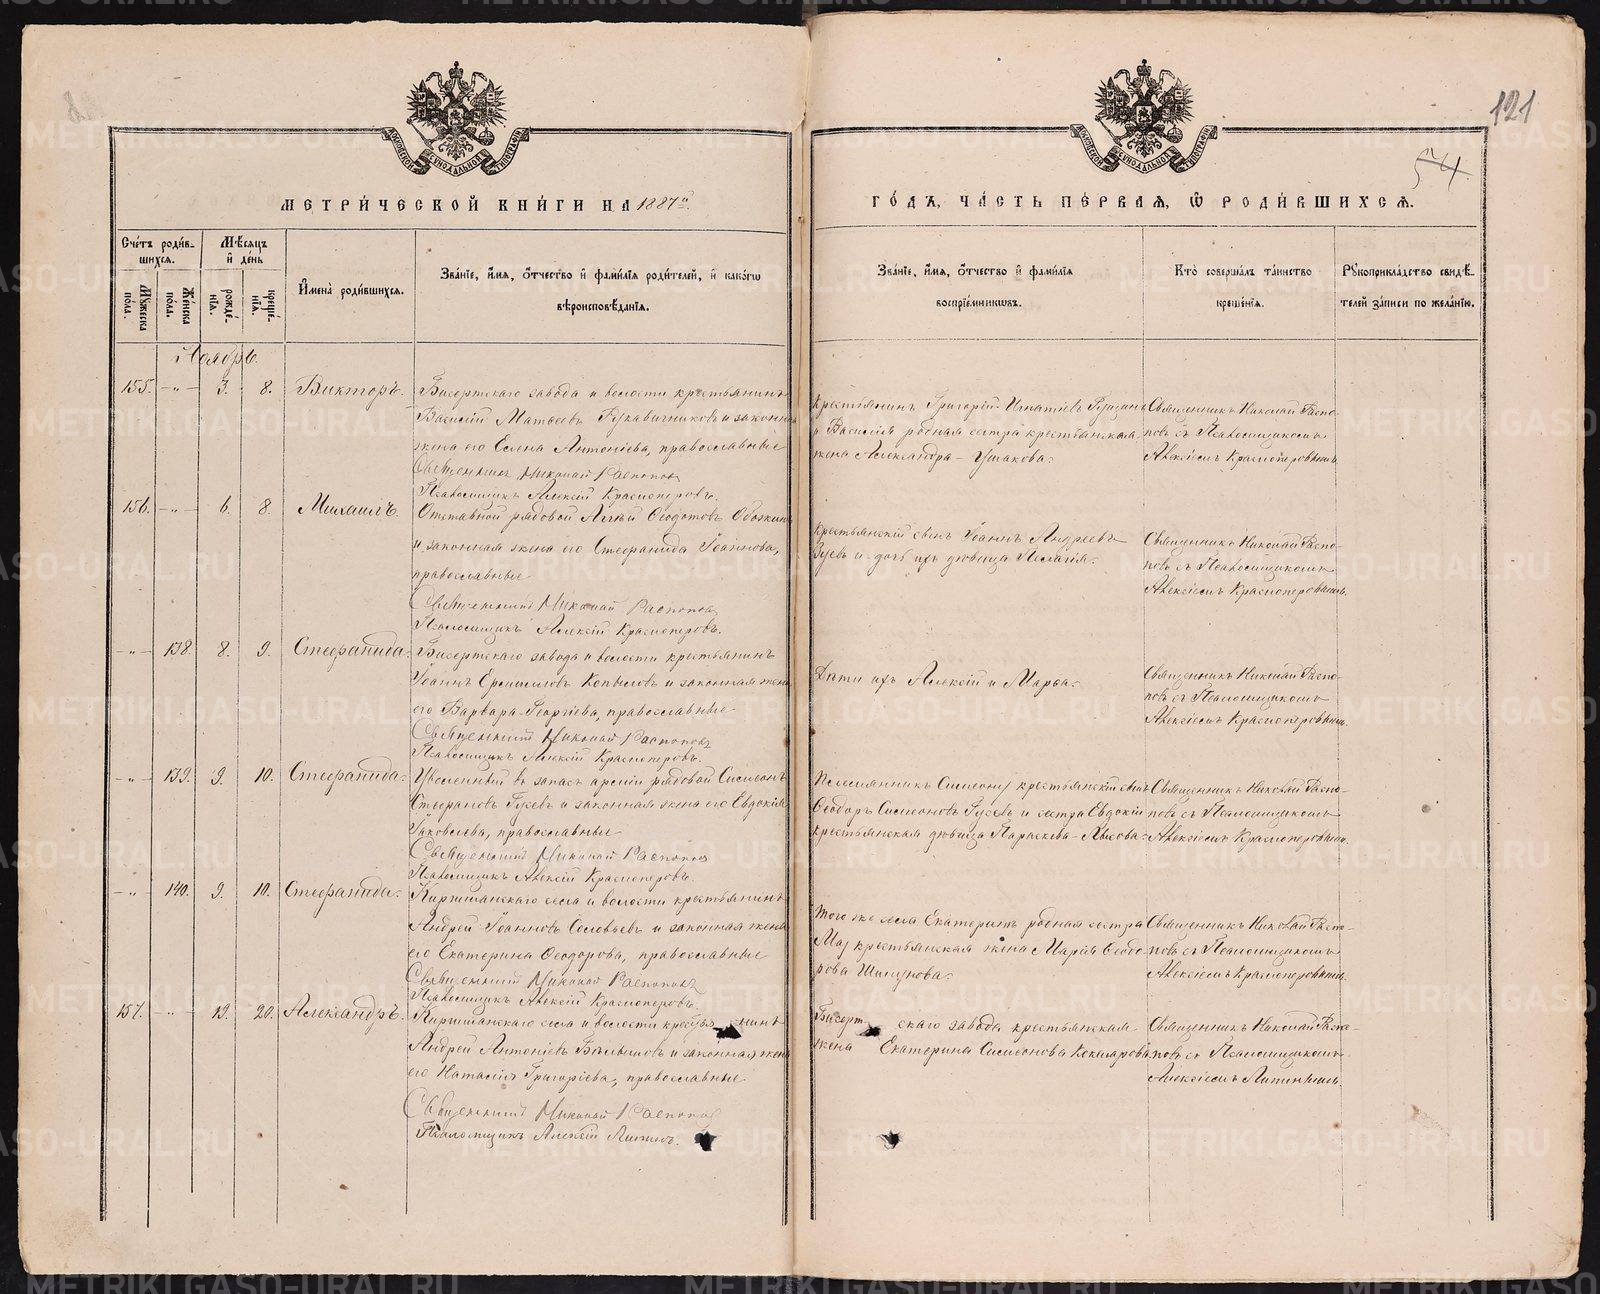 121
54
МЕТРИ́ЧЕСКОЙ КНИ́ГИ НА 1887й.
ГО́ДЪ, ЧА́СТЬ ПЕ́РВАЯ, Ѡ РОДИ́ВШИХСѦ.
Сче́тъ роди́в-
шихсѧ.
Мѹ́жеска
по́ла.
Же́нска
по́ла.
Мѣ́сѧцъ
и҆ де́нь
рожде́-
нїѧ.
креще́-
нїѧ.
И҆мена̀ роди́вшихсѧ.
Зва́нїе, и҆́мѧ, ѻ҆́тчество и҆ фами́лїѧ роди́телей, и҆ како́гѡ
вѣроисповѣ́данїѧ.
Зва́нїе, и҆́мѧ, ѻ҆́тчество и҆ фами́лїѧ
воспрїе́мникѡвъ.
Кто̀ соверша́лъ та́инство
креще́нїѧ.
Рѹкоприкла́дство свидѣ́-
телей за́писи по жела́нїю.
Ноябрь.
155. -„- 3. 8. Викторъ.
Бисертскаго завода и волости крестьянинъ
Василій Матѳеевъ Рукавичниковъ и законная
жена его Елена Антоніева, православные
Священникъ Николай Распоповъ
Псаломщикъ Алексій Красноперовъ.
Крестьянинъ Григорій Игнатіевъ
и Василія родная сестра крестьянская
жена Александра Ушакова.
Священникъ Николай Распо-
повъ съ Псаломщикомъ
Алексіемъ Красноперовымъ
156. -„- 6. 8. Михаилъ.
Отставной рядовой Ѳеодотовъ
и законная жена его Стефанида Іоаннова,
православные
Священникъ Николай Распоповъ
Псаломщикъ Алексій Красноперовъ.
Крестьянскій сынъ Іоаннъ Андреевъ
Гусевъ и дочь ихъ дѣвица Пелагія.
Священникъ Николай Распо-
повъ съ Псаломщикомъ
Алексіемъ Красноперовымъ.
-„- 138. 8. 9. Стефанида.
Бисертскаго завода и волости крестьянинъ
Іоаннъ Ермиловъ Копыловъ и законная жена
его Варвара Георгіева, православные
Священникъ Николай Распоповъ
Псаломщикъ Алексій Красноперовъ.
Дѣти ихъ Алексій и Марѳа.
Священникъ Николай Распо-
повъ съ Псаломщикомъ
Алексіемъ Красноперовымъ.
-„- 139. 9. 10. Стефанида.
Уволенный въ запасъ арміи рядовой Симеонъ
Стефановъ Гусевъ и законная жена его Евдокія
Іаковлева, православные
Священникъ Николай Распоповъ
Псаломщикъ Алексій Красноперовъ.
Племянникъ Симеону крестьянскій сынъ
Ѳеодоръ Симеоновъ Гусевъ и сестра Евдокіи
крестьянская дѣвица Параскева
Священникъ Николай Распо-
повъ съ Псаломщикомъ
Алексіемъ Красноперовымъ.
-„- 140. 9. 10. Стефанида.
Киргишанскаго села и волости крестьянинъ
Андрей Іоанновъ Соловьевъ и законная жена
его Екатерина Ѳеодорова, православные
Священникъ Николай Распоповъ
Псаломщикъ Алексій Красноперовъ.
Того же села Екатеринѣ родная сестра
крестьянская жена Марія Ѳеодо-
рова
Священникъ Николай Распо-
повъ съ Псаломщикомъ
Алексіемъ Красноперовымъ.
157. -„- 19. 20. Александръ.
Киргишанскаго села и волости крестьянинъ
Андрей Антоніевъ и законная жена
его Наталія Григоріева, православные
Священникъ Николай Распоповъ
Псаломщикъ Алексій
Бисертскаго завода крестьянская
жена Екатерина Симеонова
Священникъ Николай Распо-
повъ съ Псаломщикомъ
Алексіемъ
METRIKI.GASO-URAL.RU